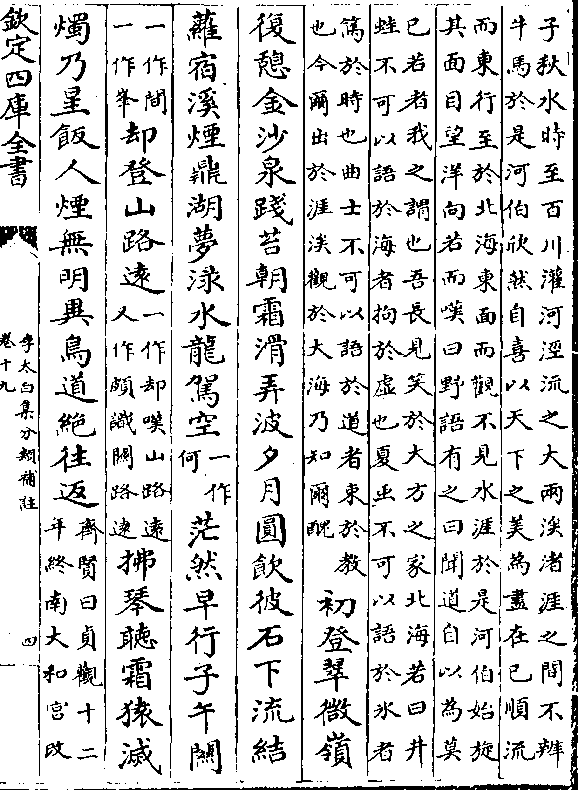 子秋水時至百川灌河涇流之大兩涘渚涯之間不辨
牛馬於是河伯欣然自喜以天下之美為盡在已順流
而東行至於北海東面而觀不見水涯於是河伯始旋
其面目望洋向若而嘆曰野語有之曰聞道自以為莫
已若者我之謂也吾長見笑於大方之家北海若曰井
蛙不可以語於海者拘於虛也夏虫不可以語於氷者
篤於時也曲士不可以語於道者束於教
也今爾出於涯涘觀於大海乃知爾醜
初登翠微嶺
復憩金沙泉踐苔朝霜滑弄波夕月圓飲彼石下流結
蘿宿溪煙鼎湖夢淥水龍駕空
一作
何
茫然早行子午關
一作間
一作峯
却登山路遠
一作却嘆山路遠
又作頗識關路遠
拂琴聴霜猿滅
燭乃星飯人煙無明異鳥道絶往返
齊賢曰貞觀十二
年終南大和宫改
欽定四庫全書
李太白集分類補註
卷十九
四